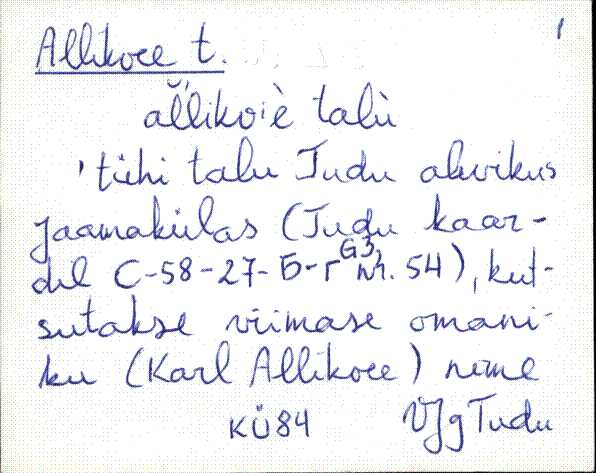 1
Allikoee t.
al̆likoiè talù
'tühi talu Tudu alevikus
Jaamakülas (Tudu kaar-
dil C-58-27-Б-г G3, nr. 54), kut-
sutakse viimase omani-
ku (Karl Allikoee) nime
KÜ84 VJg Tudu